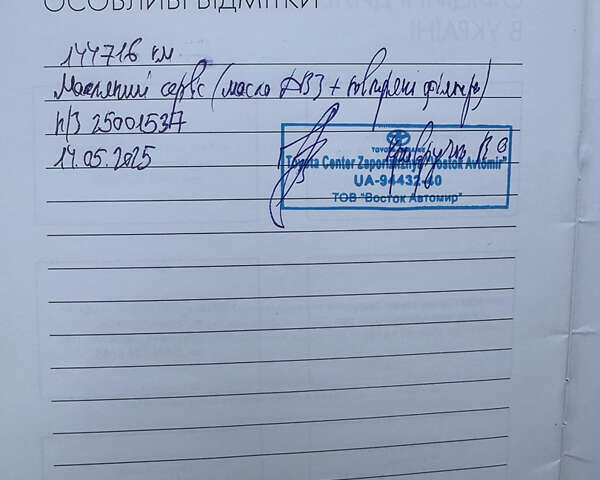 ОСОБЛИВІ ВІДМІТКИ
144716 км
Масляний сервіс (масло ДВЗ + повітряний фільтр)
н/з 250015317
14.05.2025
TOYOTA
Toyota Center Zaporizhzhya "Vostok Avtomir"
UA-94432-40
ТОВ "Восток Автомир"
В УКРАЇНІ